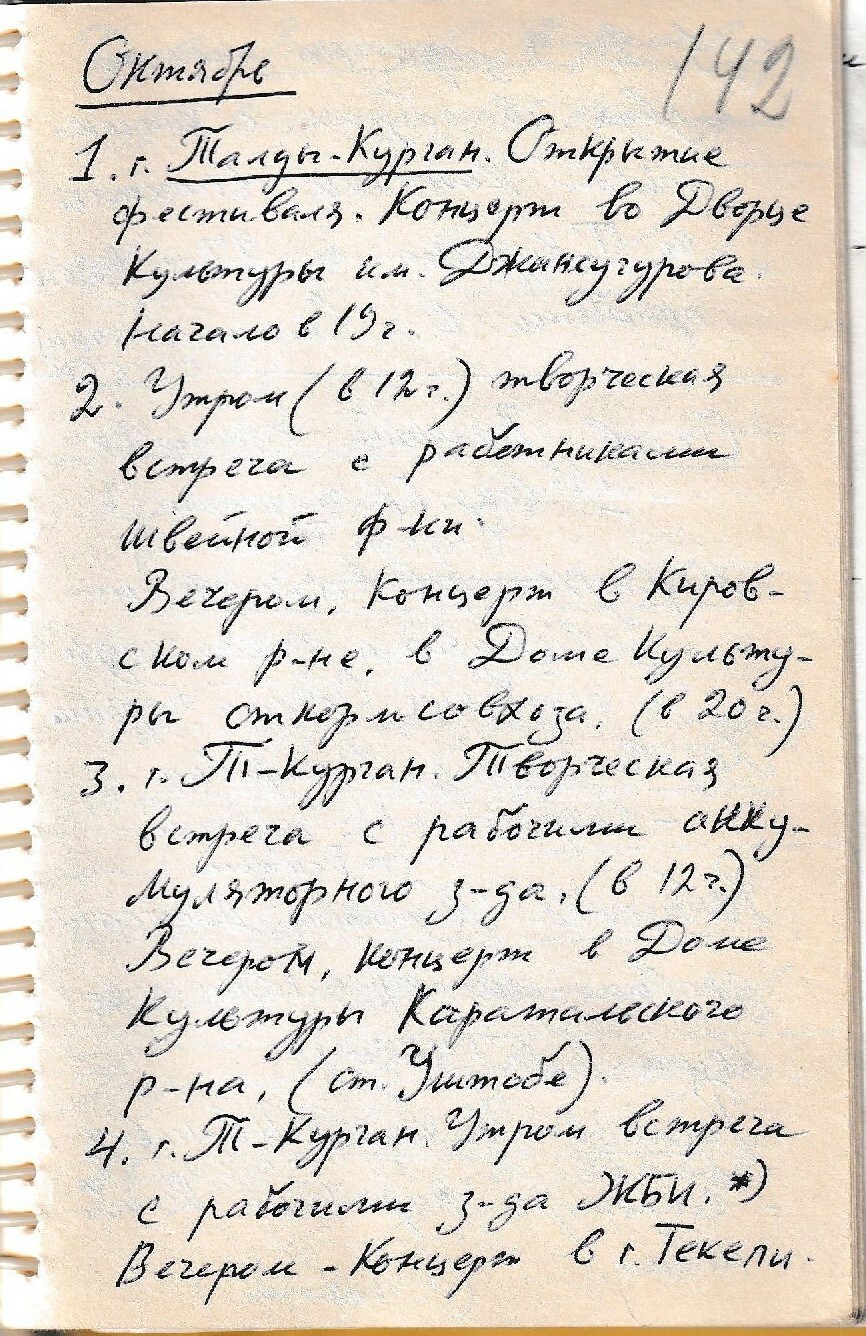 Октябрь
142
1. г. Талды-Курган. Открытие
фестиваля. Концерт во Дворце
Культуры им. Джансугурова.
Начало в 19 г.
2. Утром (в 12 г.) творческая
встреча с работниками
швейной ф-ки.
Вечером, концерт в Киров-
ском р-не, в Доме Культу-
ры откормсовхоза. (в 20 г.)
3. г. Т-Курган. Творческая
встреча с рабочими акку-
муляторного з-да. (в 12 г.)
Вечером, концерт в Доме
Культуры Каратальского
р-на, (ст. Уштобе).
4. г. Т-Курган. Утром встреча
с рабочими з-да ЖБИ. *)
Вечером - Концерт в г. Текели.